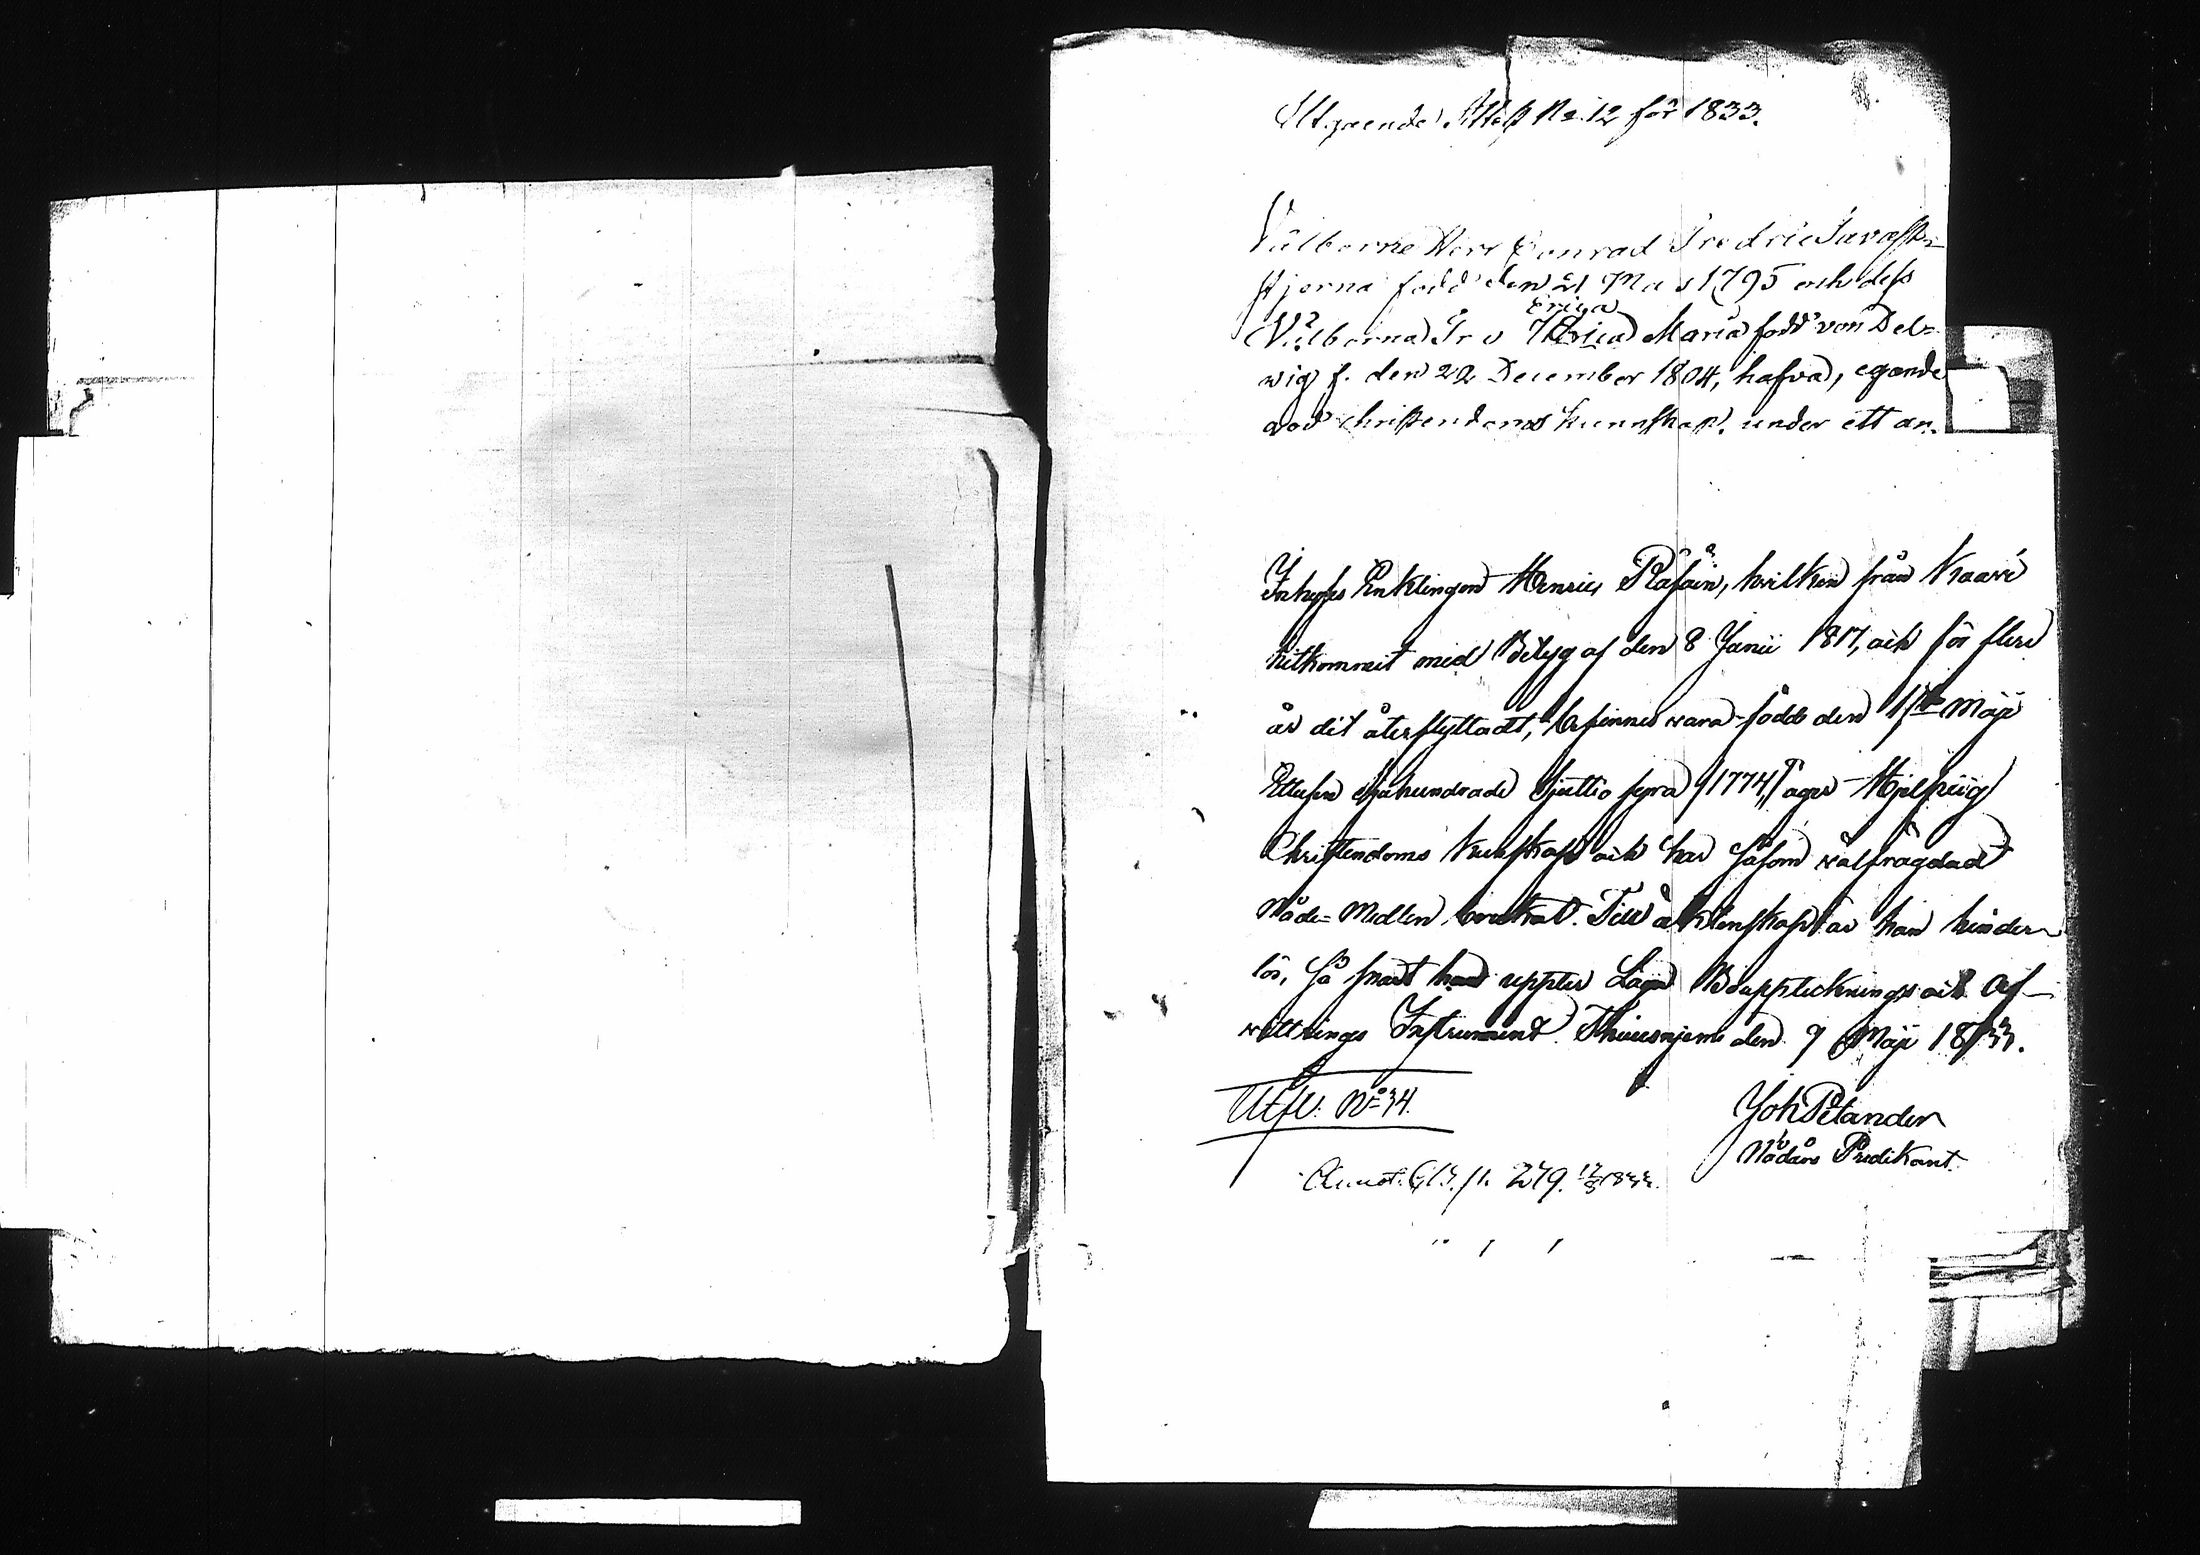 Utgående Attest No 12 för 1833.
Välborne Herr Conrad Fredric Tavast-
stjerna född den 21 Maj 1795 och dess
Eriga
Välborna Fru Ulrica Maria född von Del-
wig f. den 22 December 1804, hafva, egande
god christendoms kunnskap, under ett an-
Inhyses Enklingen Henric Räsäin, hvilken från Kaavi
hitkommit med Betyg af den 8 Junii 1817, och för flere
år dit återflyttadt, befinnes wara född den 1ste Maji
Ettusen sjuhundrade sjuttio fyra (1774), äger Hjelplig
Christendoms Kunskap och har såsom wälfrägdad
Nåde-Medlen brukat. Till äktenskap är han hinder-
lös, så snart han uppter Laga Bouppteknings och Af-
wittrings Instrument. Thuusnjemi den 9 Maji 1833.
Utfl. No 34.
Joh Petander
Nådårs Predikant.
Annot. 279. 1833.